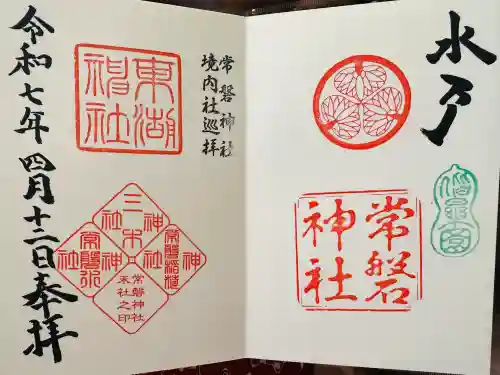 水戸
偕樂園
常磐
神社
常磐神社
境内社巡拝
東湖
神社
三木
神社
常磐稲荷
神社
常磐神社
末社之印
令和七年四月十二日奉拝